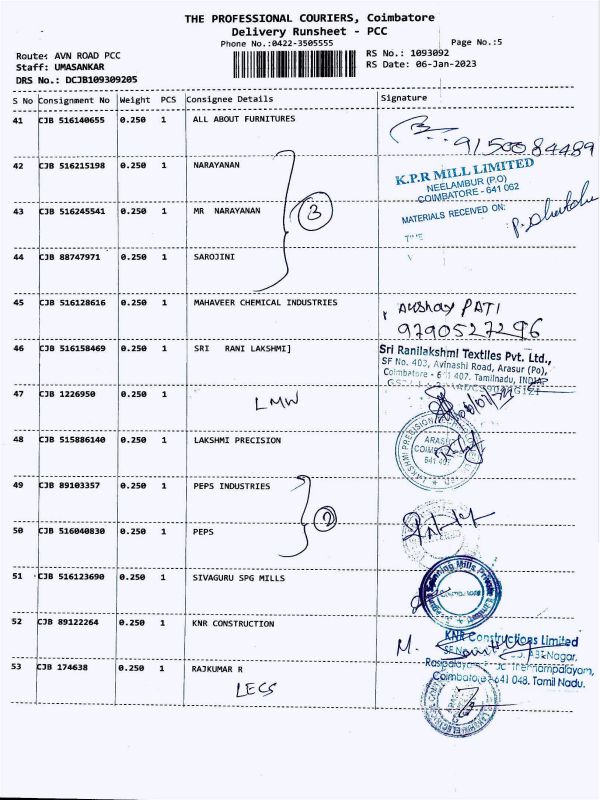 THE PROFESSIONAL COURIERS, Coimbatore
Delivery Runsheet - PCC
Phone No.:0422-3505555
Page No.:5
Route: AVN ROAD PCC
RS No.: 1093092
Staff: UMASANKAR
RS Date: 06-Jan-2023
DRS No.: DCJB109309205
S No Consignment No Weight PCS Consignee Details Signature
41 CJB 516140655 0.250 1 ALL ABOUT FURNITURES
9150084489
42 CJB 516215198 0.250 1 NARAYANAN
K.P.R MILL LIMITED
NEELAMBUR (P.O)
COIMBATORE - 641 062
43 CJB 516245541 0.250 1 MR NARAYANAN
3
MATERIALS RECEIVED ON:
TIME
44 CJB 88747971 0.250 1 SAROJINI
45 CJB 516128616 0.250 1 MAHAVEER CHEMICAL INDUSTRIES
Akshay PATI
9790527296
46 CJB 516158469 0.250 1 SRI RANI LAKSHMI]
Sri Ranilakshmi Textiles Pvt. Ltd.,
SF No. 403, Avinashi Road, Arasur (Po),
Coimbatore - 641 407. Tamilnadu, INDIA
47 CJB 1226950 0.250 1
LMW
48 CJB 515886140 0.250 1 LAKSHMI PRECISION
LAKSHMI PRECISION
ARASUR
COIMBATORE
641 407
49 CJB 89103357 0.250 1 PEPS INDUSTRIES
2
50 CJB 516040830 0.250 1 PEPS
51 CJB 516123690 0.250 1 SIVAGURU SPG MILLS
Spinning Mills Private Limited
52 CJB 89122264 0.250 1 KNR CONSTRUCTION
KNR Constructions Limited
53 CJB 174638 0.250 1 RAJKUMAR R
Coimbatore-641 048. Tamil Nadu.
LECS